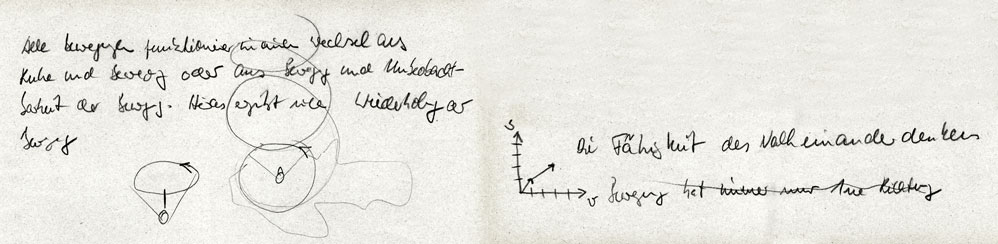 Alle bewegungen funktionieren in einem Wechsel aus
Ruhe und Bewegg oder aus Bewegg und Unbeobacht-
barkeit der Bewegg. Hieraus ergibt sich Wiederholung der
Bewegg
s
Die Fähigkeit des Nacheinanderdenkens
v Bewegung hat immer nur eine Richtung